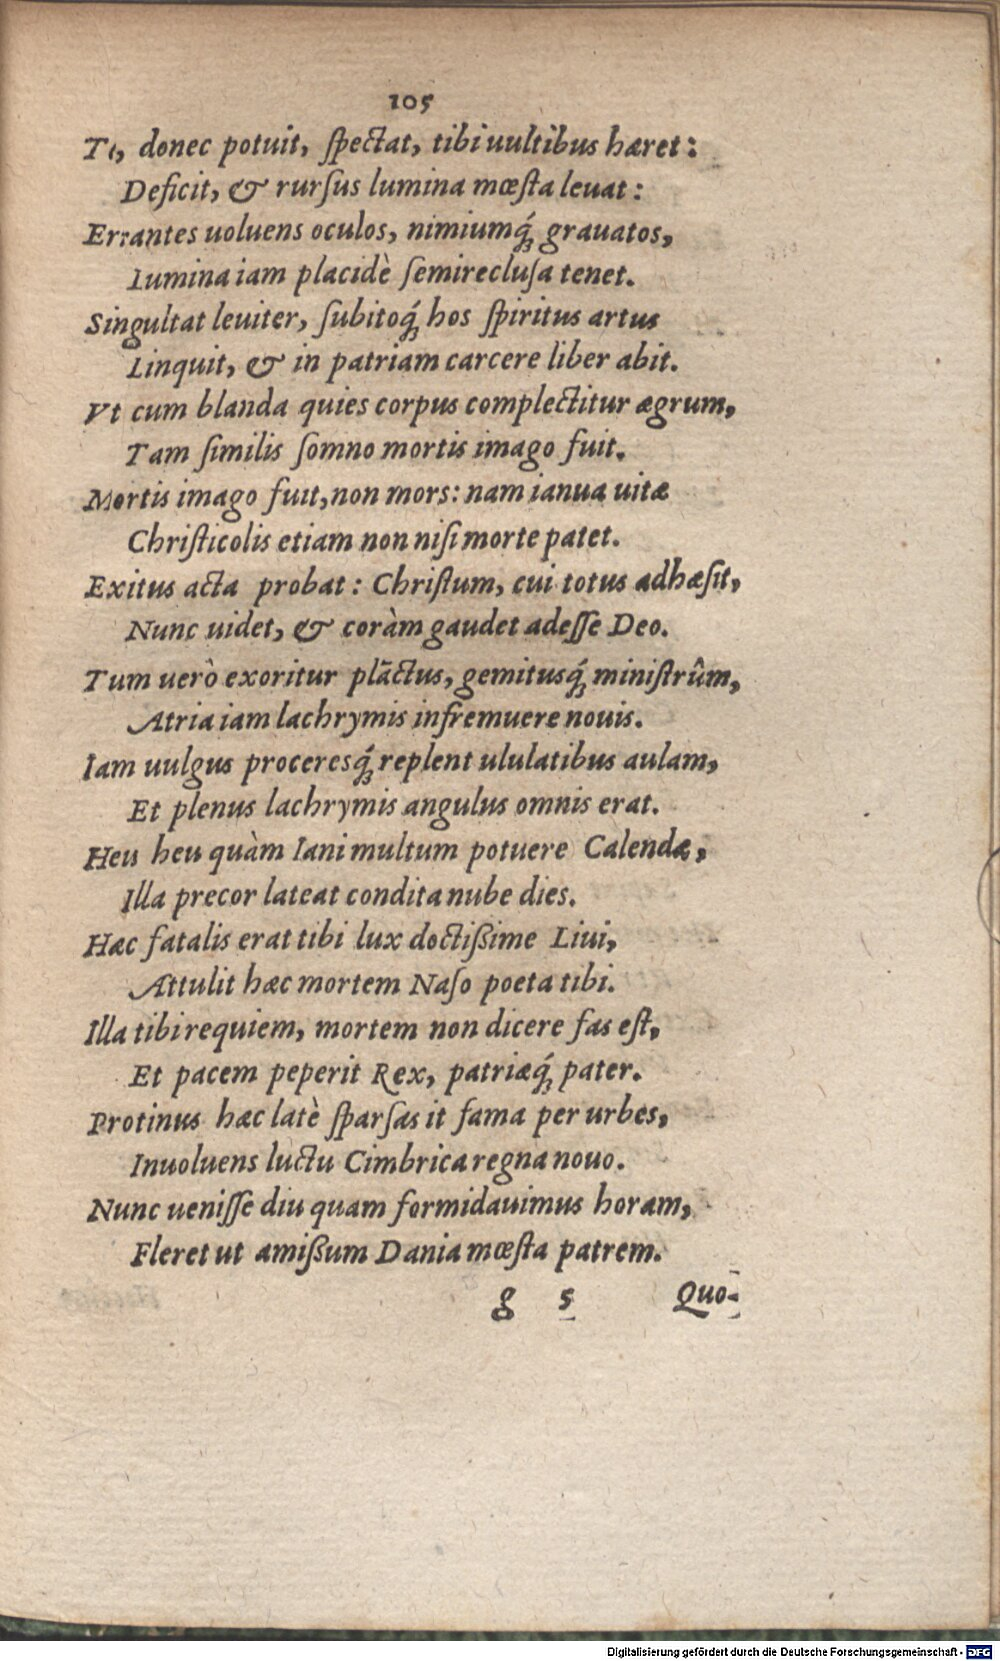 105
Te, donec potuit, ſpectat, tibi uultibus hæret:
Deficit, & rurſus lumina mœſta leuat:
Errantes uoluens oculos, nimiumq́; grauatos,
Lumina iam placidè ſemirecluſa tenet.
Singultat leuiter, ſubitoq́; hos ſpiritus artus
Linquit, & in patriam carcere liber abit.
Vt cum blanda quies corpus complectitur ægrum,
Tam ſimilis ſomno mortis imago fuit.
Mortis imago fuit, non mors: nam ianua uitæ
Chriſticolis etiam non niſi morte patet.
Exitus acta probat: Chriſtum, cui totus adhæſit,
Nunc uidet, & coràm gaudet adeſſe Deo.
Tum uerò exoritur plāctus, gemitusq́; miniſtrûm,
Atria iam lachrymis infremuere nouis.
Iam uulgus proceresq́; replent ululatibus aulam,
Et plenus lachrymis angulus omnis erat.
Heu heu quàm Iani multum potuere Calendæ,
Illa precor lateat condita nube dies.
Hæc fatalis erat tibi lux doctißime Liui,
Attulit hæc mortem Naſo poeta tibi.
Illa tibi requiem, mortem non dicere fas eſt,
Et pacem peperit Rex, patriæq́; pater.
Protinus hæc latè ſparſas it fama per urbes,
Inuoluens luctu Cimbrica regna nouo.
Nunc ueniſſe diu quam formidauimus horam,
Fleret ut amißum Dania mœſta patrem.
g 5 Quo-
Digitalisierung gefördert durch die Deutsche Forschungsgemeinschaft - DFG